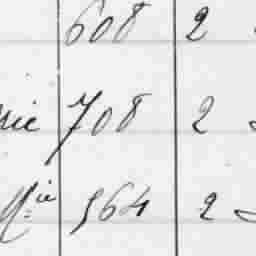 608 2
rie 708 2
M.ie 564 2